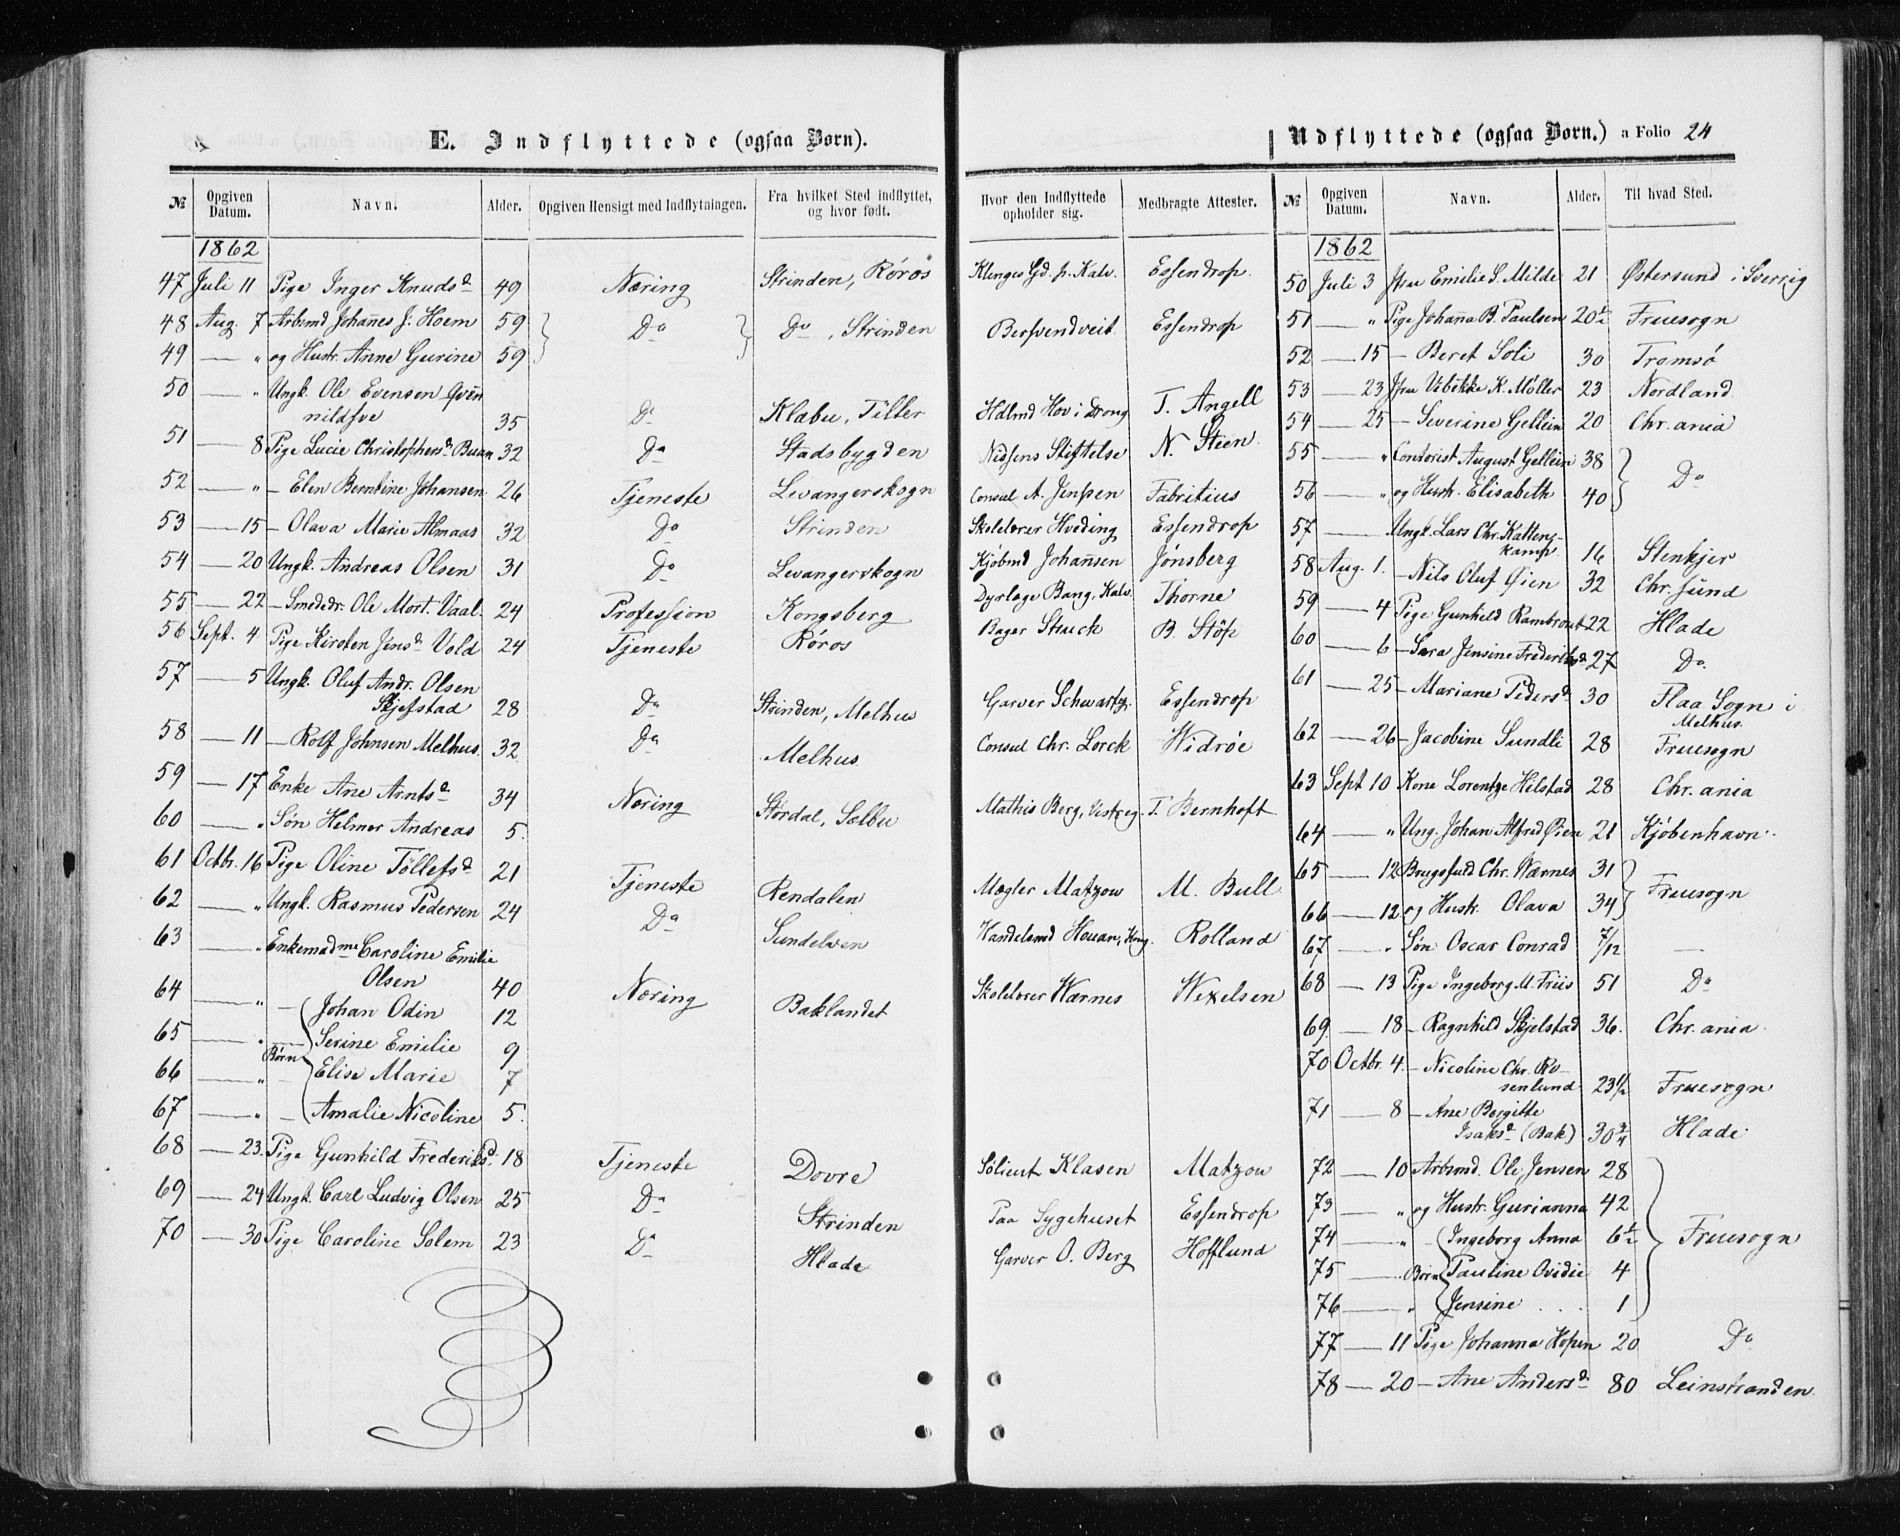 E. Indflyttede (ogsaa Børn).
№ Opgiven Datum. Navn. Alder. Opgiven Hensigt med Indflytningen. Fra hvilket Sted indflyttet, og hvor født. Hvor den Indflyttede opholder sig. Medbragte Attester.
1862
47 Juli 11 Pige Inger Knudsd. 49 Næring Strinden, Røros Klenges Gd. p. Kalv. Essendrop
48 Aug. 7 Arbmd Johanes J. Hoem 59 Do Do, Strinden Bersvendveit Essendrop
49 — " og Hustr. Anne Gurine 59
50 — " Ungk. Ole Evensen
nildsve 35 Do Klæbu, Tiller Hdlmd Hov i Drong. T. Angell
51 — 8 Pige Lucie Christophersd. Buan 32 Do Stadsbygden Nissens Stiftelse N. Steen
52 — " — Elen Berntine Johansen 26 Tjeneste Levangerskogn Consul A. Jenssen Fabritius
53 — 15 — Olava Marie Almaas 32 Do Strinden Skolelærer Hveding Essendrop
54 — 20 Ungk. Andreas Olsen 31 Do Levangerskogn Kjøbmd Johansen Jønsberg
55 — 22 — Smededr. Ole Mort. Vaal. 24 Profession Kongsberg Dyrlæge Bang, Kalv. Thorne
56 Sept. 4 Pige Kirsten Jensd. Vold 24 Tjeneste Røros Bager Struck B. Støp
57 — 5 Ungk. Oluf Andr. Olsen
Skjefstad 28 Do Strinden, Melhus Garver Schwartz. Essendrop
58 — 11 — Rolf Johnsen Melhus. 32 Do Melhus Consul Chr. Lorck Widrøe
59 — 17 Enke Ane Arntsd. 34 Næring Størdal, Sælbu Mathis Berg, Vestreg. T. Bernhoft
60 — " Søn Helmer Andreas 5.
61 Octbr. 16 Pige Oline Tollefsd. 21 Tjeneste Rendalen Mægler Matzow M. Bull
62 — " Ungk. Rasmus Pedersen 24 Do Sundelven Handelsmd Houan, Kong. Rolland
63 — " Enkemadme Caroline Emilie
Olsen 40 Næring Baklandet Skolelærer Wærnes Wexelsen
64 — " — Johan Odin 12
65 — " — Serine Emilie 9
Børn
66 — " — Elise Marie 7
67 — " — Amalie Nicoline 5.
68 — 23. Pige Gunhild Frederiksd. 18 Tjeneste Dovre Klasen Matzow
69 — 24 Ungk. Carl Ludvig Olsen 25 Do Strinden Paa Sygehuset Essendrop
70 — 30 Pige Caroline Solem 23 Do Hlade Garver O. Berg Hofflund
Udflyttede (ogsaa Børn.) a Folio 24
№ Opgiven Datum. Navn. Alder. Til hvad Sted.
1862
50 Juli 3 Jfru Emilie S. Milde 21 Østersund i Sverrig
51 — " Pige Johanna B. Paulsen 20½ Fruesogn
52 — 15 — Beret Soli 30 Tromsø
53 — 23 Jfru Vibekke K. Møller 23 Nordland
54 — 25 — Severine Gellein 20 Chr.ania
55 — " Contorist August Gellein 38 Do
56 — " og Hustr. Elisabeth 40
57 — Ungk. Lars Chr. Katten-
kamp 16 Stenkjer
58 Aug. 1. — Nils Oluf Øien 32 Chr.sund
59 — 4 Pige Gunhild Rambraut 22 Hlade
60 — 6 — Sara Jensine Frederiksd. 27 Do
61 — 25 — Mariane Pedersd. 30 Flaa Sogn i
Melhus
62 — 26 — Jacobine Sundli 28 Fruesogn
63 Sept 10 Kone Lorentze Hilstad 28 Chr.ania
64 — " Ung. Johan Alfred Øien 21 Kjøbenhavn
65 — 12 Brugsfuld Chr. Wærnes 31 Fruesogn
66 — 12 og Hustr. Olava 34
67 — " Søn Oscar Conrad 7/12 —
68 — 13 Pige Ingeborg M. Friis 51 Do
69 — 18 — Ragnhild Skjelstad 36. Chr.ania
70 Octbr. 4. — Nicoline Chr. Ro-
senlund 23½ Fruesogn
71 — 8 — Ane Bergitte
Isaksd. (Bak) 30¾ Hlade
72 — 10 Arbmd. Ole Jensen 28
73 — " og Hustr. Gurianna 42
74 — " — Ingeborg Anna 6½ Fruesogn
75 — Børn Pauline Ovidie 4
76 — " Jensine . . . 1
77 — 11 Pige Johanna Hopen 20 Do
78 — 20 — Ane Andersd. 80 Leinstranden